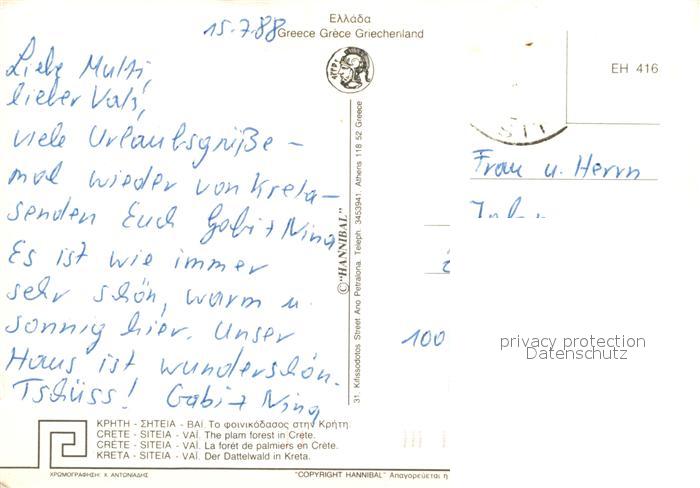 Ελλάδα
15.7.88 Greece Grèce Griechenland
Liebe Mutti,
lieber Vati,
viele Urlaubsgrüße –
mal wieder von Kreta –
senden Euch Gabi + Nina
Es ist wie immer
sehr schön, warm u.
sonnig hier. Unser
Haus ist wunderschön.
Tschüss! Gabi + Nina
©"HANNIBAL"
31. Kifissodotos Street Ano Petralona. Teleph 3453941. Athens 118 52 Greece
EH 416
Frau u. Herrn
100
privacy protection
Datenschutz
ΚΡΗΤΗ - ΣΗΤΕΙΑ - ΒΑΪ. Το φοινικόδασος στην Κρήτη.
CRETE - SITEIA - VAÏ. The plam forest in Crete.
CRÈTE - SITEIA - VAÏ. La forêt de palmiers en Crète.
KRETA - SITEIA - VAÏ. Der Dattelwald in Kreta.
ΧΡΩΜΟΓΡΑΦΗΣΗ: Χ. ΑΝΤΩΝΙΑΔΗΣ "COPYRIGHT HANNIBAL" Απαγορεύεται η